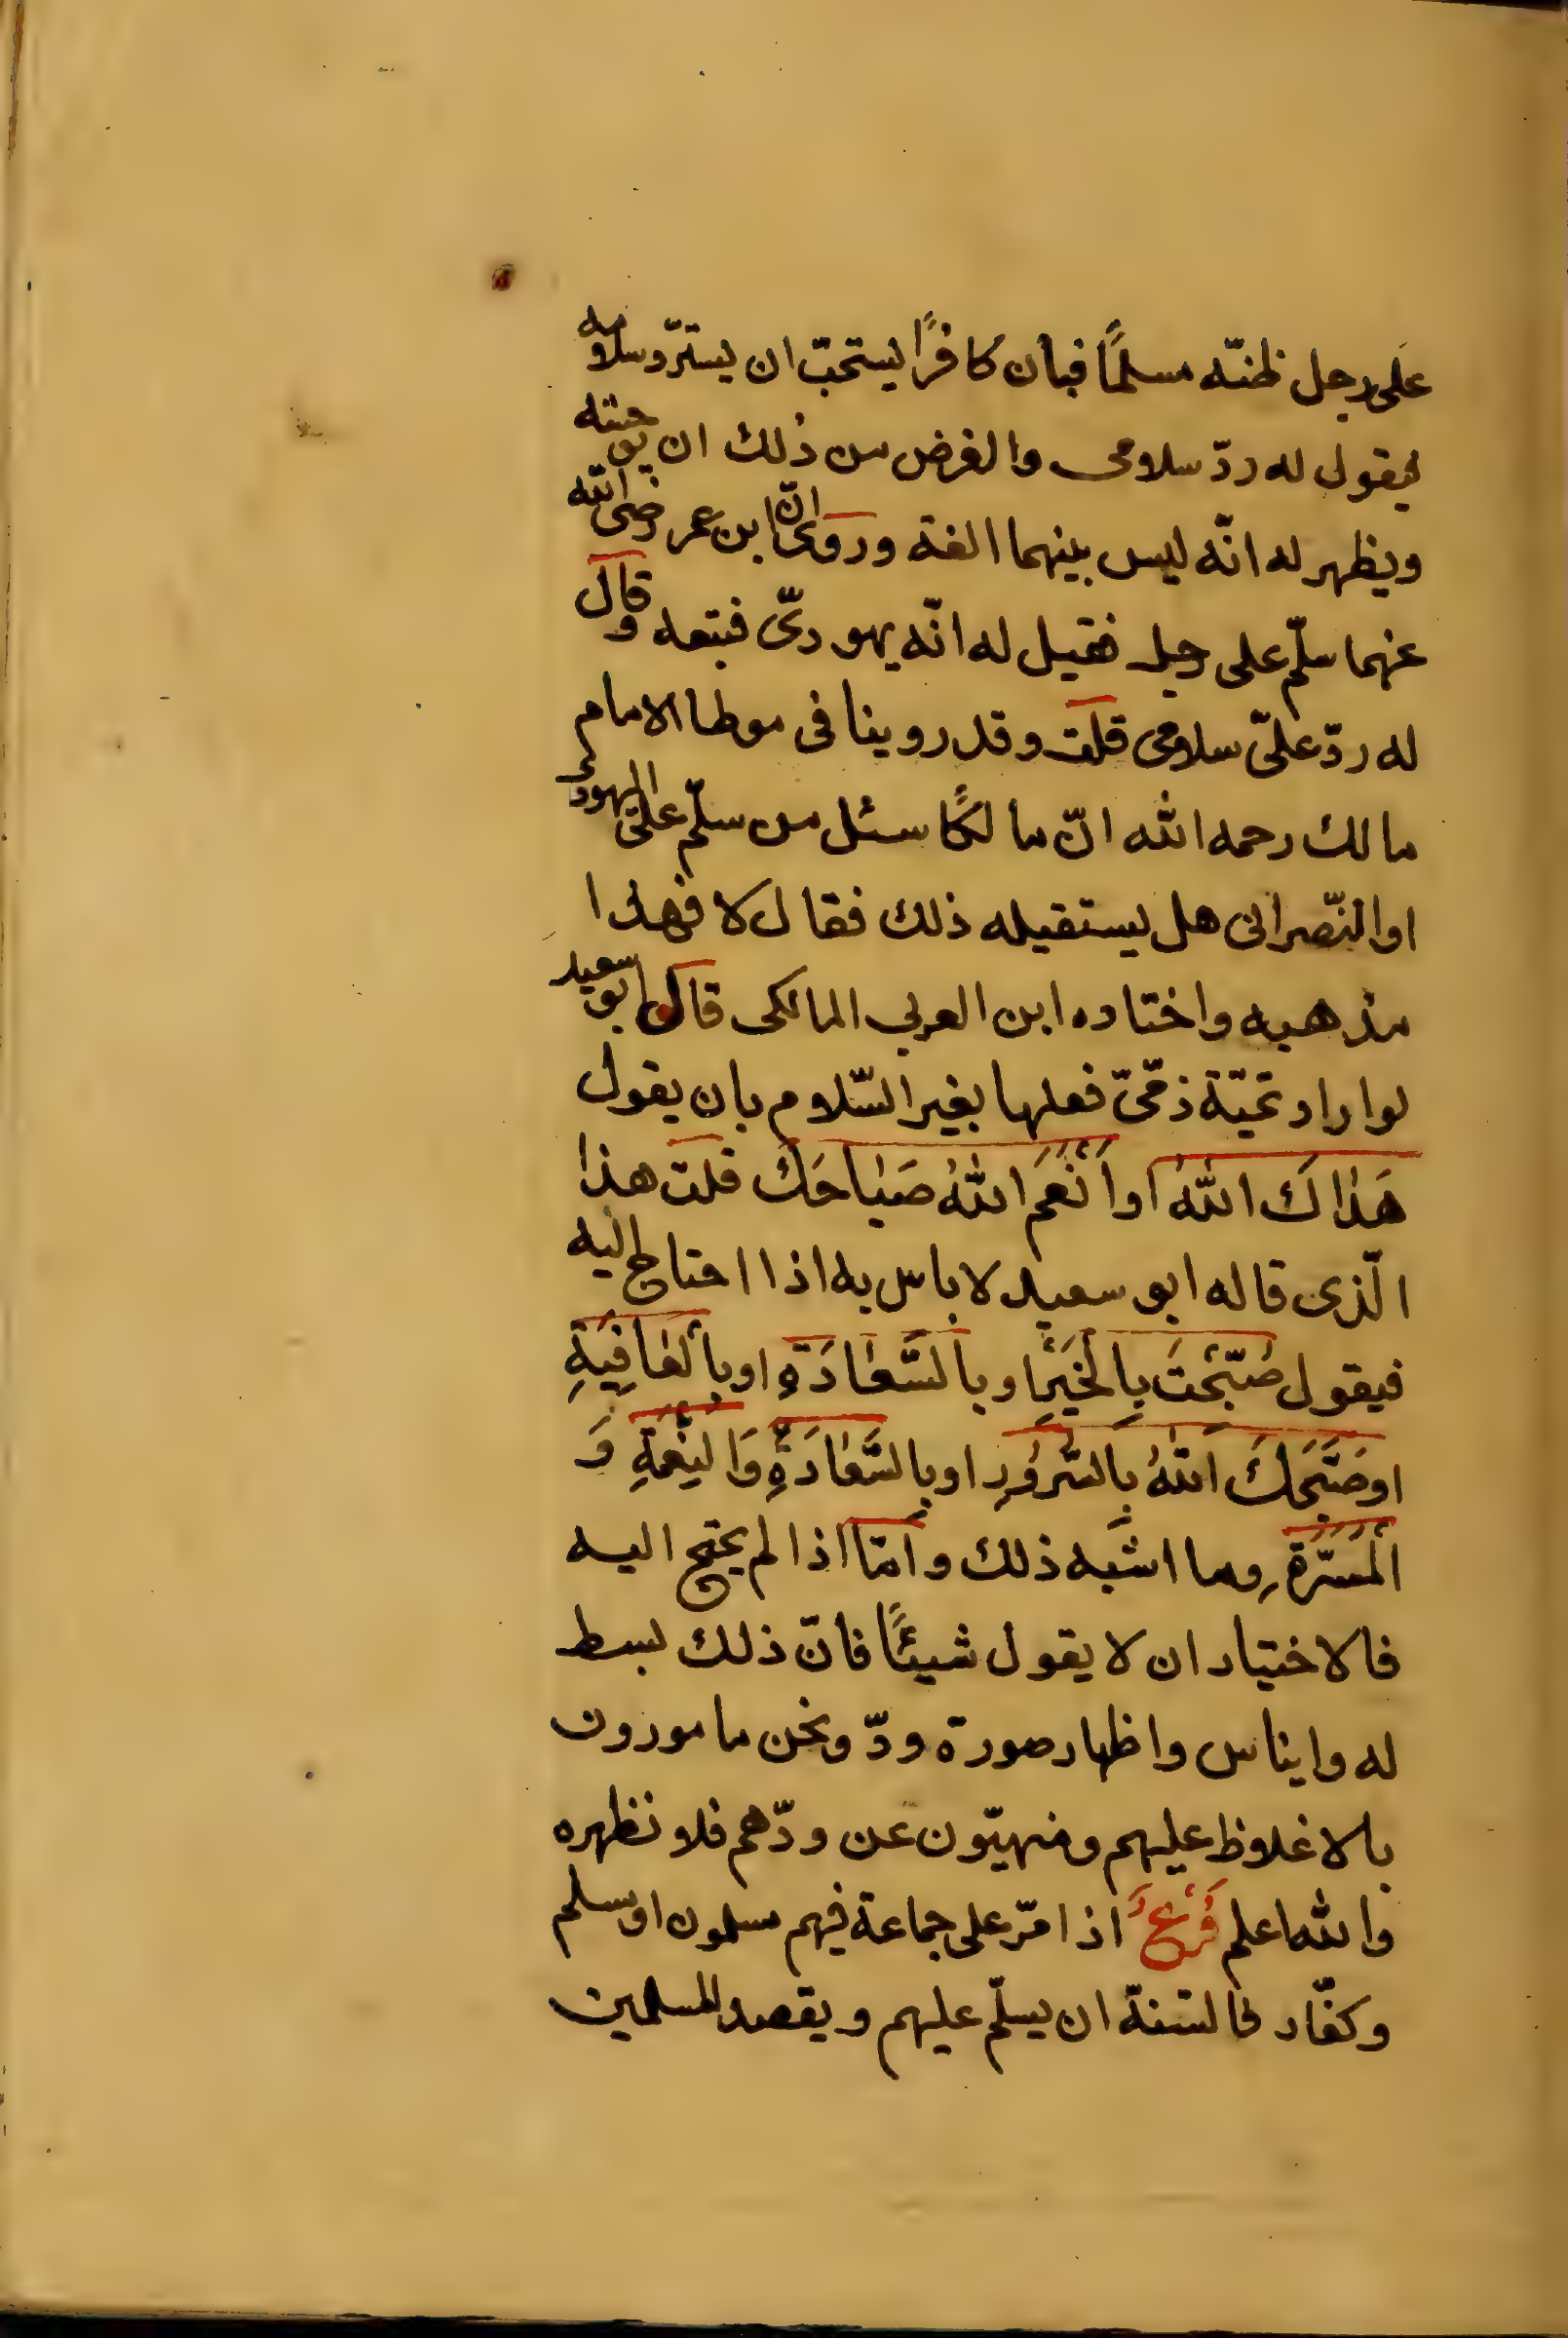 على رجل ظنّه مسلمًا فبان كافرًا يستحبّ ان يستردّ سلامه
فيقول له ردّ سلامى والغرض من ذلك ان يوحشه
ويظهر له انّه ليس بينهما الفة وروى انّ ابن عمر رضى الله
عنهما سلّم على رجل فقيل له انّه يهودىّ فتبعه وقال
له ردّ علىّ سلامى قلت وقد روينا فى موطا الامام
مالك رحمه الله انّ مالكًا سئل من سلّم على اليهودىّ
او النّصرانى هل يستقيله ذلك فقال لا فهذا
مذهبه واختاره ابن العربي المالكى قال ابو سعيد
لو اراد تحيّة ذمّىّ فعلها بغير السّلام بان يقول
هَدٰاكَ اللّٰهُ او اَنْعَمَ اللّٰهُ صَبٰاحَكَ قلت هذا
الّذى قاله ابو سعيد لا باس به اذا احتاج اليه
فيقول صُبّحْتَ بِالْخَيْرِ او بِالسَّعٰادَةِ او بِالْعٰافِيَةِ
او صَبَّحَكَ اللّٰهُ بِالسُّرُورِ او بِالسَّعٰادَةِ وَالنِّعْمَةِ وَ
الْمَسَرَّةِ وما اشبه ذلك وامّا اذا لم يحتج اليه
فالاختيار ان لا يقول شيئًا فانّ ذلك بسط
له وايناس واظهار صورة ودّ ونحن مامورون
بالاغلاظ عليهم ومنهيّون عن ودّهم فلا نظهره
والله اعلم فَرْعٌ اذا مرّ على جماعة فيهم مسلمون او مسلم
وكفّار فالسّنة ان يسلّم عليهم ويقصد المسلمين